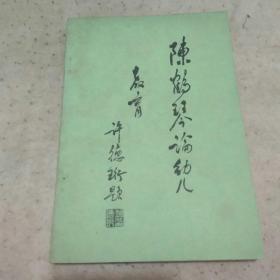 陳鶴琴論幼儿
教育
許德珩題